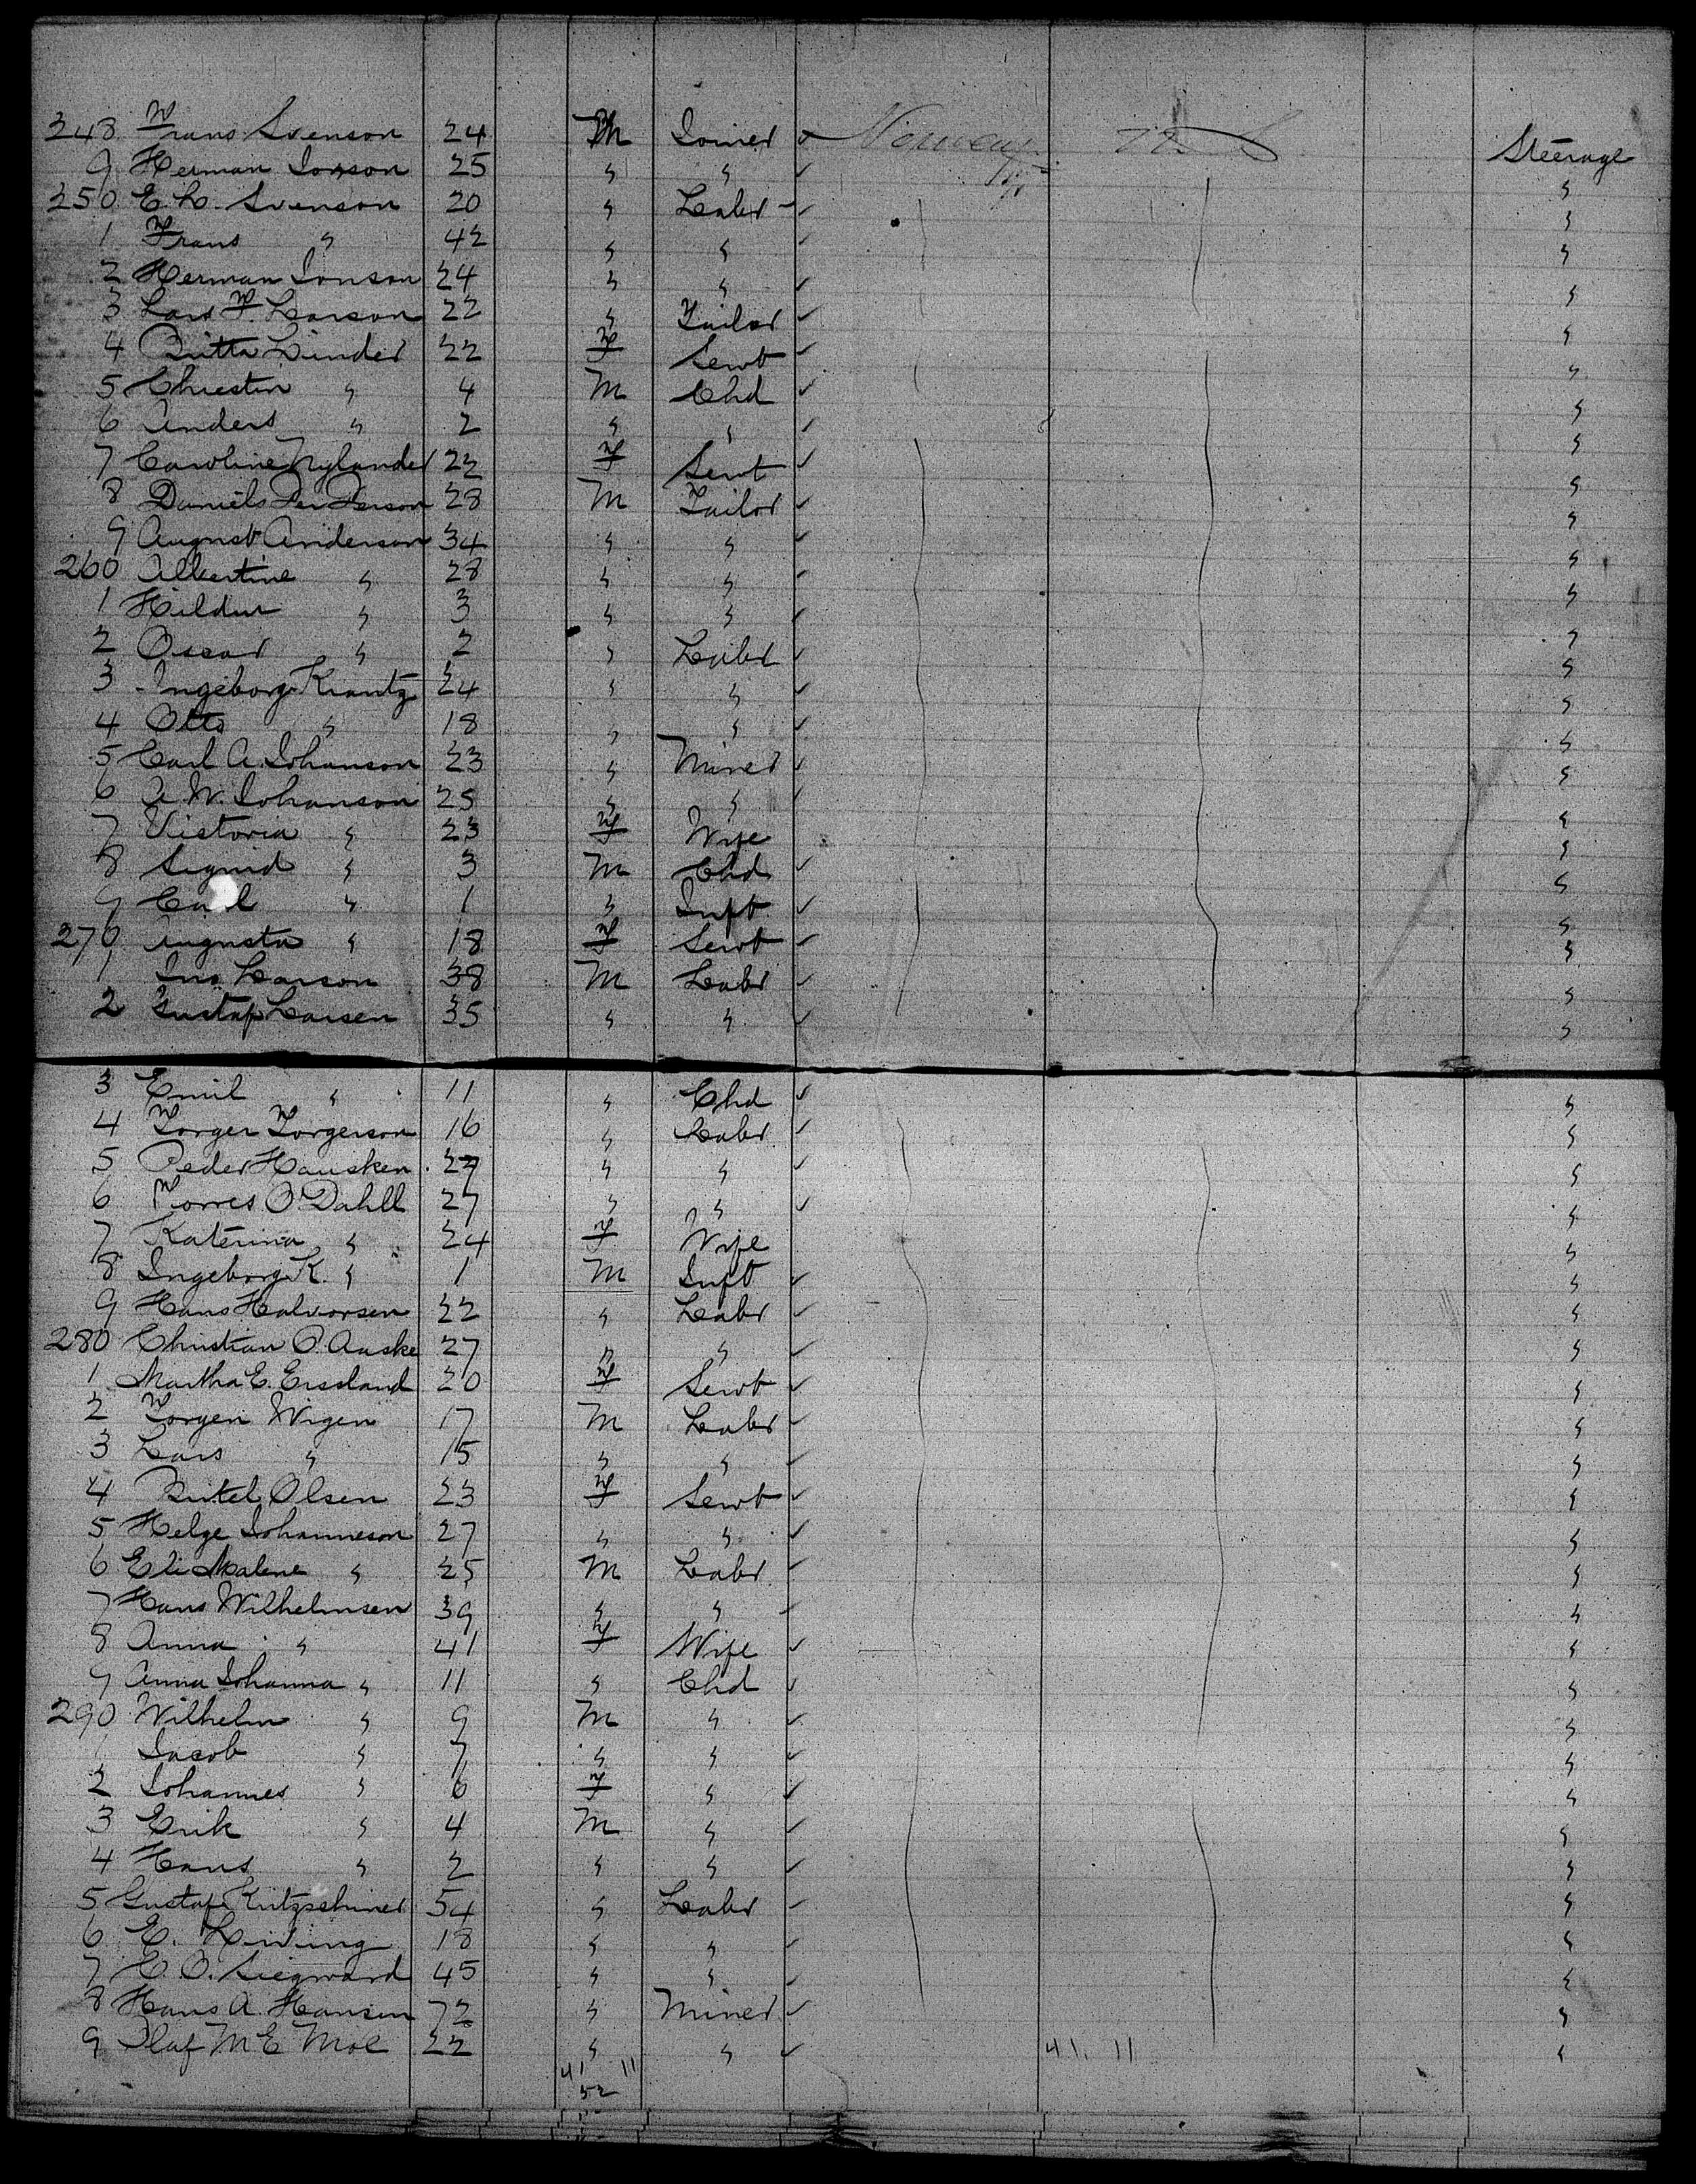 248 Frans Svenson 24 M Joiner ✓ Norway U S Steerage
9 Herman Jonson 25 " " ✓ "
250 E. L. Svenson 20 " Labr ✓ "
1 Frans " 42 " " ✓ "
2 Herman Jonson 24 " " ✓ "
3 Lars F. Larson 22 " Tailor ✓ "
4 Britta Linder 22 F Servt ✓ "
5 Christin " 4 M Chd ✓ "
6 Anders " 2 " " ✓ "
7 Caroline Nylander 22 F Servt ✓ "
8 Daniels Per Person 28 M Tailor ✓ "
9 August Anderson 34 " " ✓ "
260 Albertine " 28 " " ✓ "
1 Hildur " 3 " " ✓ "
2 Oscar " 2 " Labr ✓ "
3 Ingeborg Krantz 24 " " ✓ "
4 Otto " 18 " " ✓ "
5 Carl A. Johanson 23 " Miner ✓ "
6 A. W. Johanson 25 " " ✓ "
7 Victoria " 23 F Wife "
8 Sigrid " 3 M Chd ✓ "
9 Carl " 1 " Inft ✓ "
270 Augusta " 18 F Servt ✓ "
1 Larson 38 M Labr ✓ "
2 Gustaf Larsen 35 " " ✓ "
3 Emil " 11 " Chd ✓ "
4 Torger Torgerson 16 " Labr ✓ "
5 Peder Hausken 27 " " ✓ "
6 Torres O. Dahll 27 " " ✓ "
7 Katerina " 24 F Wife "
8 Ingeborg K. " 1 M Inft ✓ "
9 Hans Halvorsen 22 " Labr ✓ "
280 Christian O. Aaske 27 " " ✓ "
1 Martha E. Ersland 20 F Servt ✓ "
2 Torger Wigen 17 M Labr ✓ "
3 Lars " 15 " " ✓ "
4 Olsen 23 F Servt ✓ "
5 Helge Johanneson 27 " " ✓ "
6 Eli Malene " 25 M Labr ✓ "
7 Hans Wilhelmsen 39 " " ✓ "
8 Anna " 41 F Wife ✓ "
9 Anna Johanna " 11 " Chd ✓ "
290 Wilhelm " 9 M " ✓ "
1 Jacob " 7 " " ✓ "
2 Johannes " 6 F " ✓ "
3 Erik " 4 M " ✓ "
4 Hans " 2 " " ✓ "
5 Gustaf 54 " Labr ✓ "
6 E. 18 " " ✓ "
7 E. O. Siegward 45 " " ✓ "
8 Hans A. Hansen 72 " Miner ✓ "
9 Olaf M E Moe 22 " " ✓ 41. 11 "
41 11
52